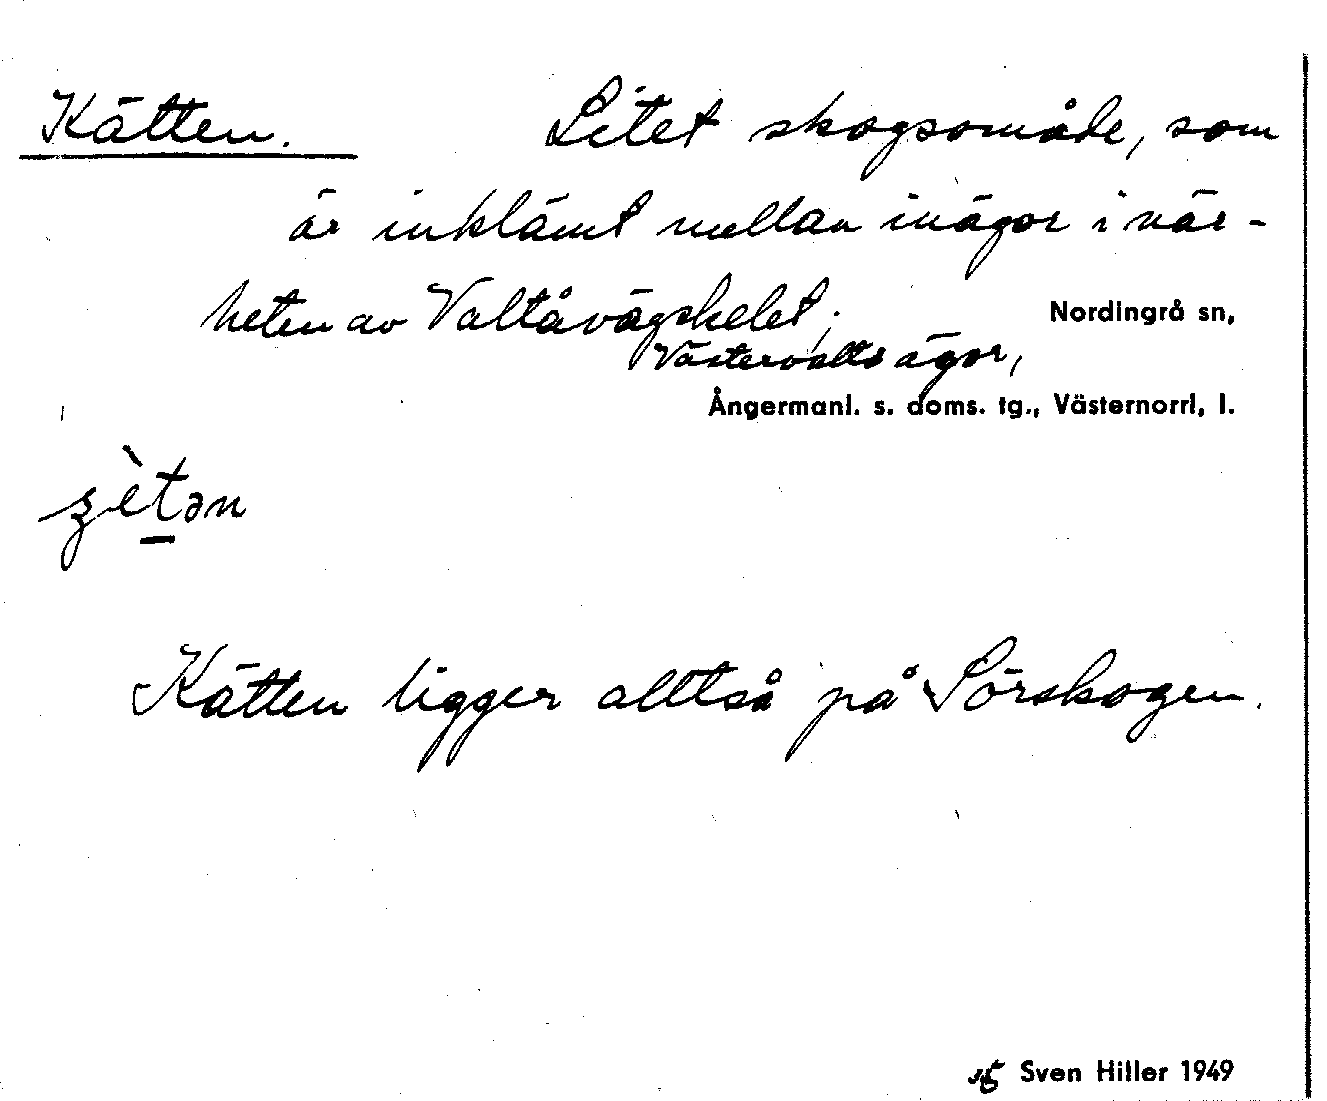 Kätten. Litet skogsområde, som
är inklämt mellan inägor i när-
heten av Valtåvägskelet;
Nordingrå sn,
Västervalts ägor,
Ångermanl. s. doms. tg., Västernorrl. l.
Kätten ligger alltså på Sörskogen.
Sven Hiller 1949